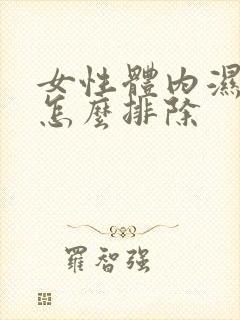 女性體內濕
怎麼排除
羅智強